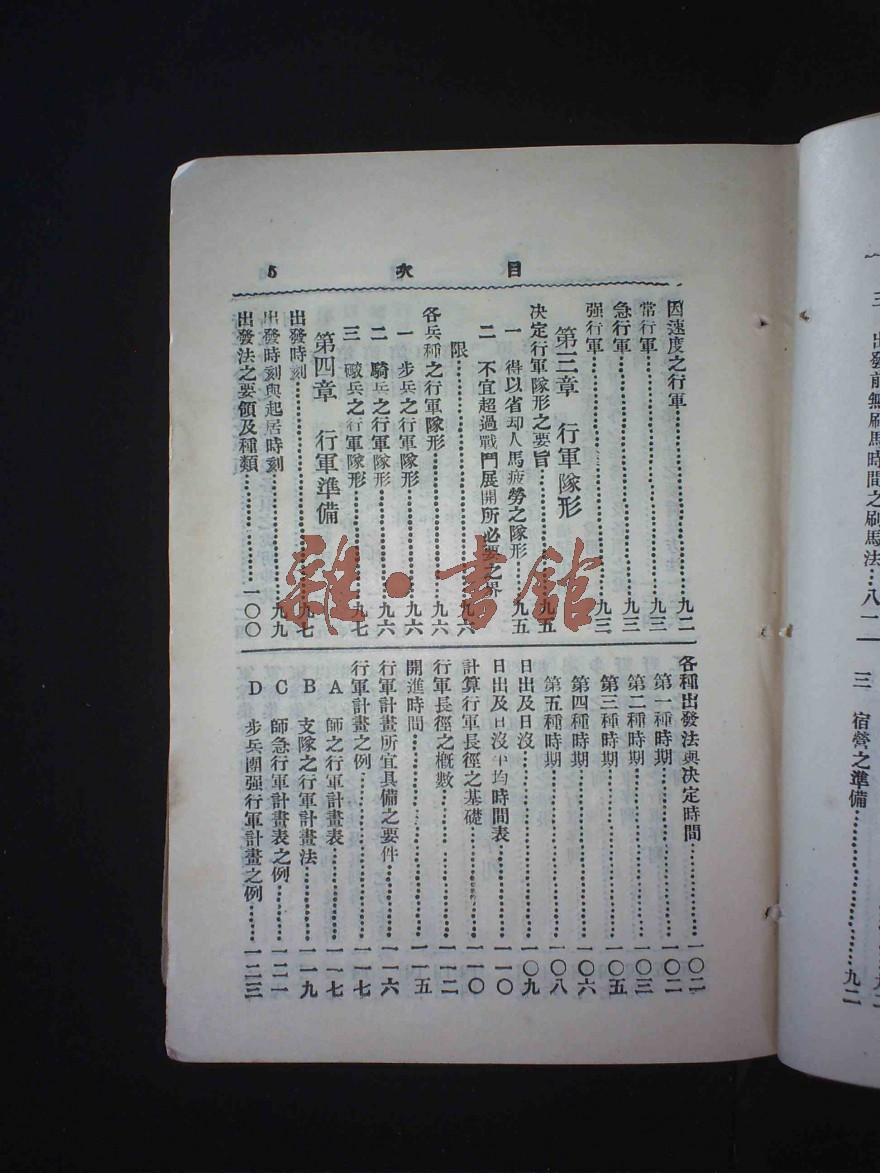 目次 5
因速度之行軍……九二
常行軍……九三
急行軍……九三
强行軍……九三
第三章 行軍隊形
決定行軍隊形之要旨……九五
一 得以省却人馬疲勞之隊形……九五
二 不宜超過戰鬥展開所必要之界
限……九六
各兵種之行軍隊形……九六
一 步兵之行軍隊形……九六
二 騎兵之行軍隊形……九六
三 礮兵之行軍隊形……九七
第四章 行軍準備
出發時刻……九七
出發時刻與起居時刻……九九
出發法之要領及種類……一〇〇
各種出發法與決定時間……一〇二
第一種時期……一〇二
第二種時期……一〇三
第三種時期……一〇五
第四種時期……一〇六
第五種時期……一〇八
日出及日沒……一〇九
日出及日沒平均時間表……一一〇
計算行軍長徑之基礎……一一〇
行軍長徑之概數……一一二
開進時間……一一五
行軍計畫所宜具備之要件……一一六
行軍計畫之例……一一七
A 師之行軍計畫表……一一七
B 支隊之行軍計畫法……一一九
C 師急行軍計畫表之例……一二一
D 步兵團强行軍計畫之例……一二三
三 出發前無刷馬時間之刷馬法…八二
三 宿營之準備……九二
雜·書館